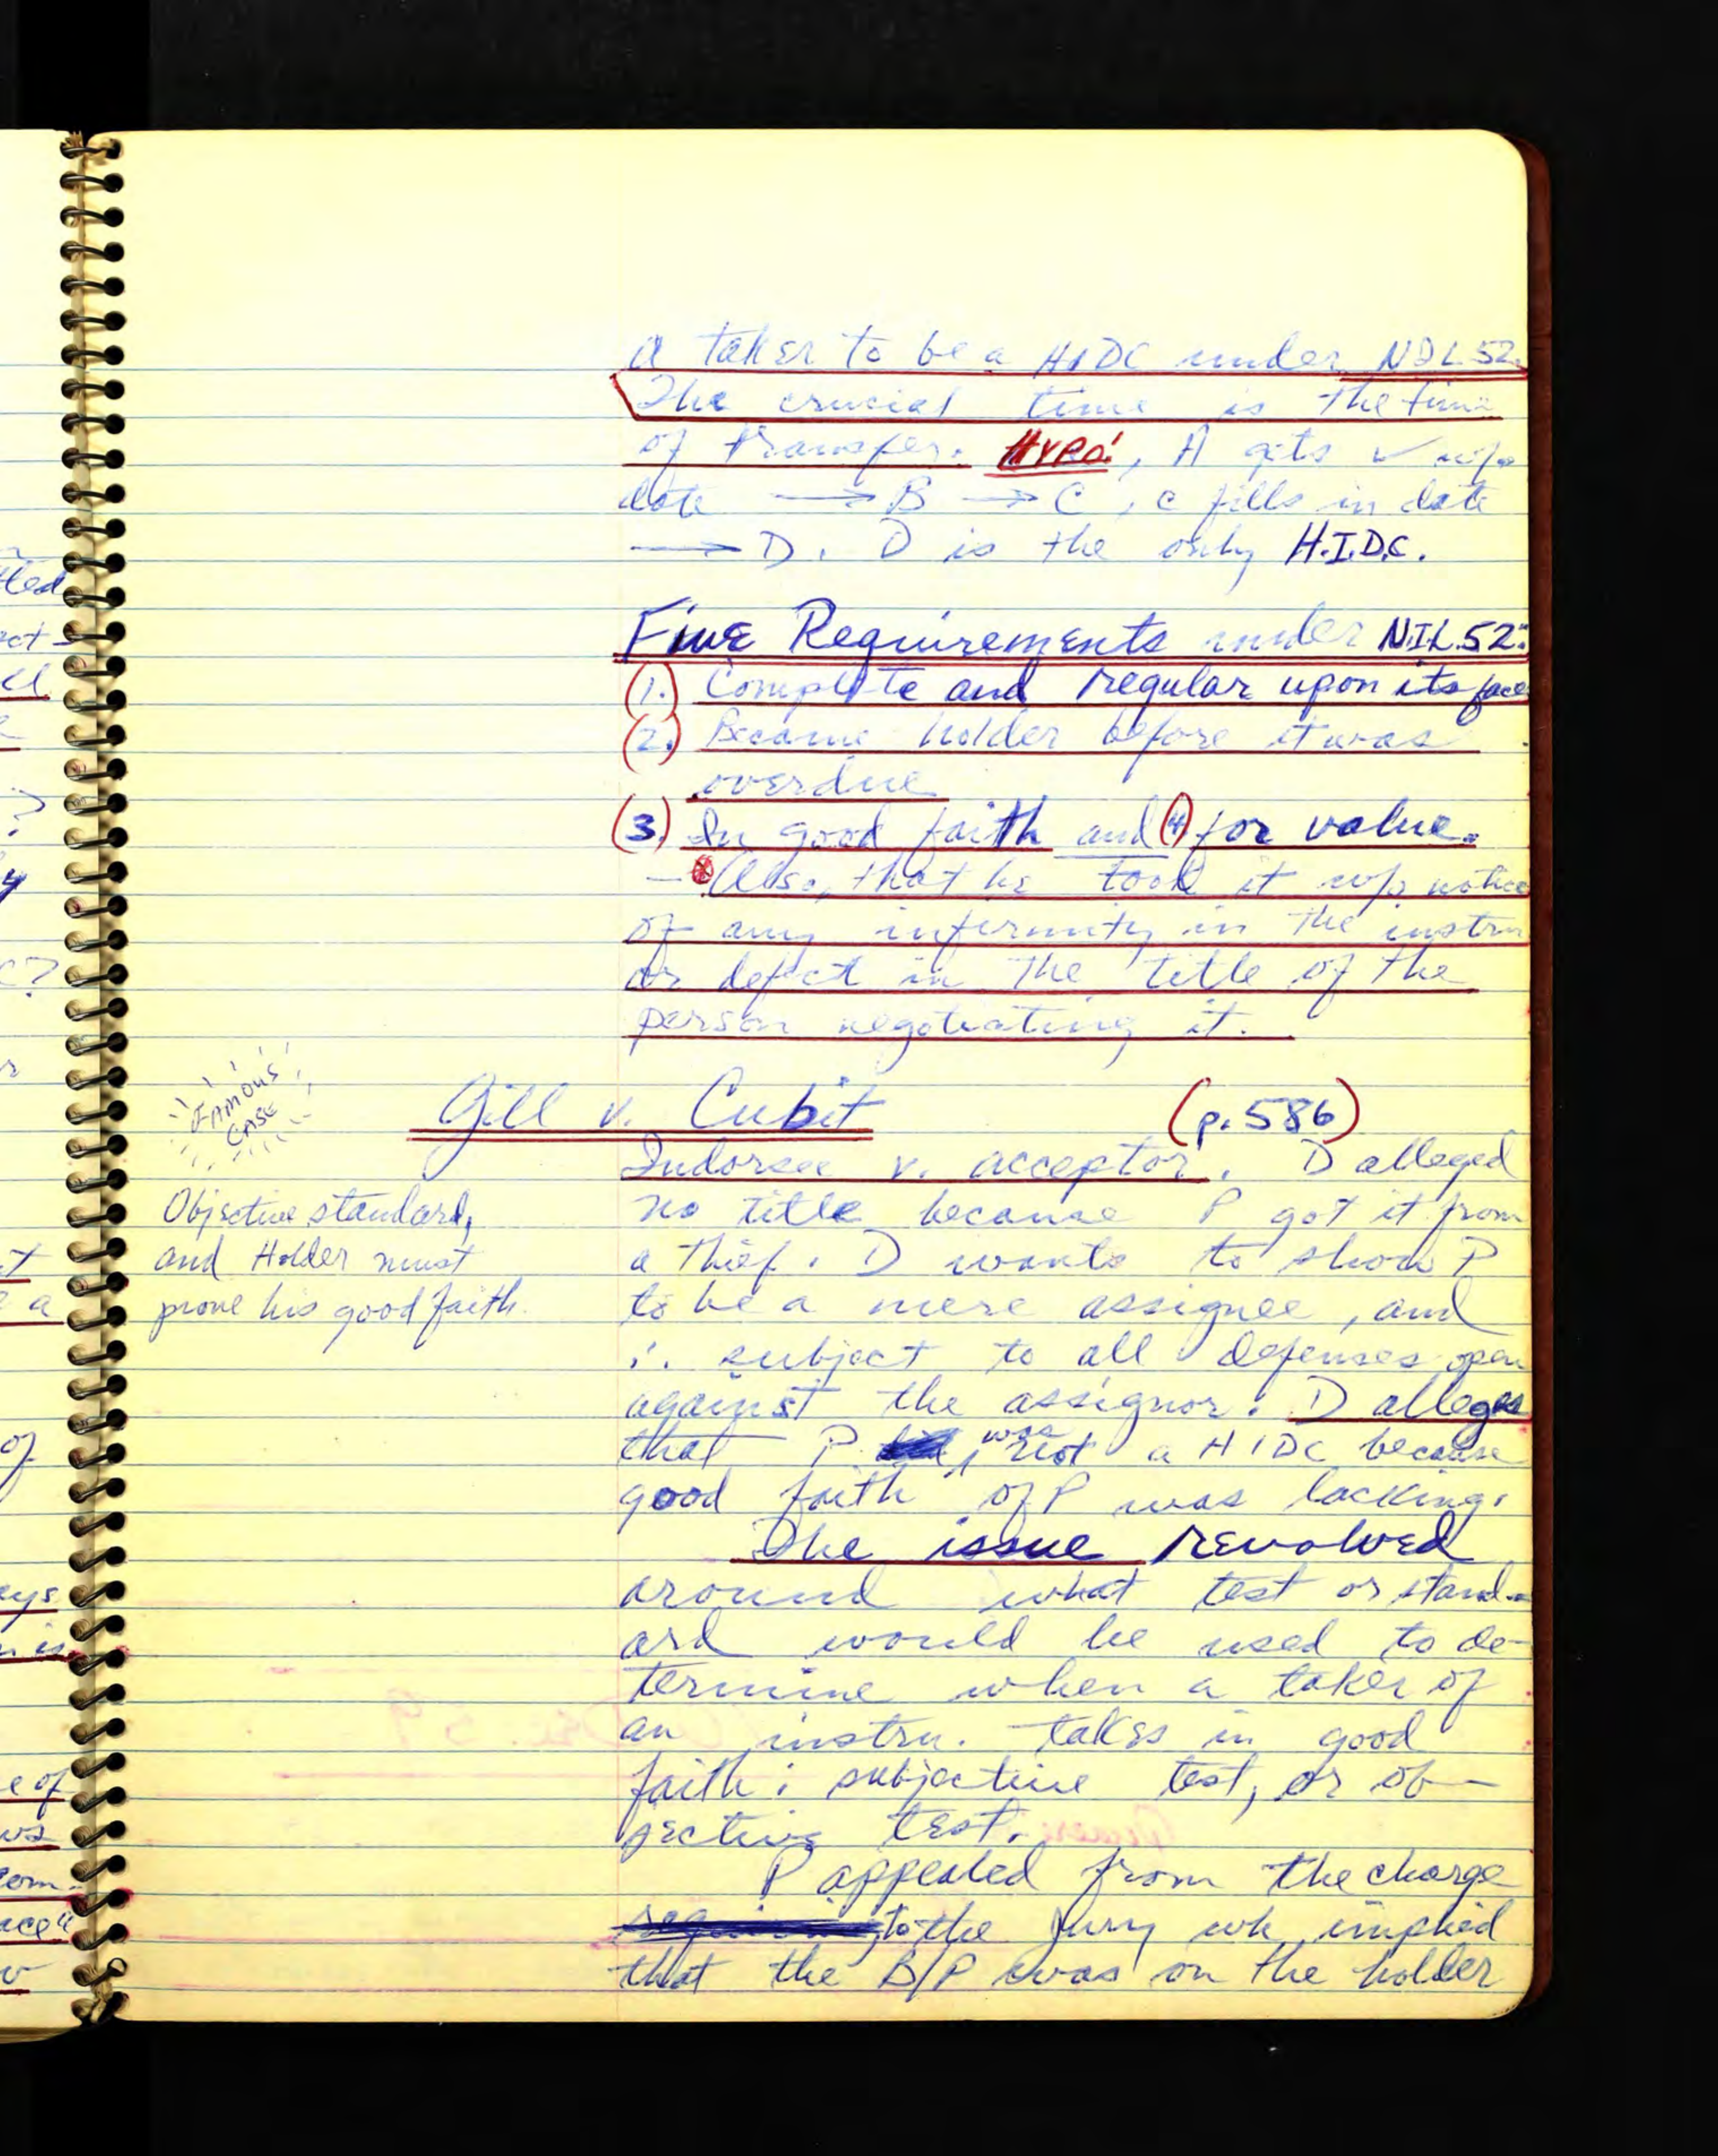 a taker to be a HIDC under N.I.L. 52.
The crucial time is the time
of transfer. HYPO:, A gets ✓ w/o
date → B → C, C fills in date
→ D. D is the only H.I.D.C.
Five Requirements under N.I.L. 52:
(1.) Complete and regular upon its face
(2.) Became holder before it was
overdue
(3.) In good faith and (4) for value.
— Also, that he took it w/o notice
of any infirmity in the instru
or defect in the title of the
person negotiating it.
FAMOUS
CASE
Gill v. Cubit (p. 586)
Indorsee v. acceptor. D alleged
no title because P got it from
a thief. D wants to show P
to be a mere assignee, and
∴ subject to all defenses open
against the assignor. D alleges
that P was not a HIDC because
good faith of P was lacking.
Objective standard,
and Holder must
prove his good faith.
The issue revolved
around what test or stand-
ard would be used to de-
termine when a taker of
an instru. takes in good
faith: subjective test, or ob-
jective test.
P appealed from the charge
to the jury wh implied
that the B/P was on the holder